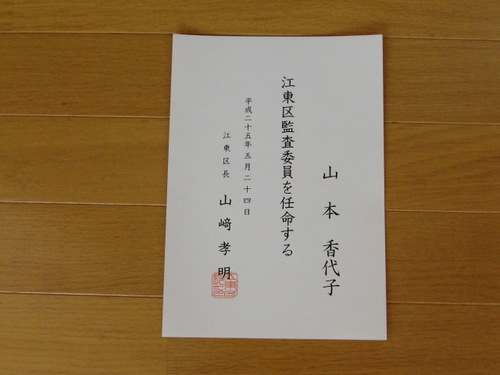 山本 香代子
江東区監査委員を任命する
平成二十五年五月二十四日
江東区長 山﨑孝明